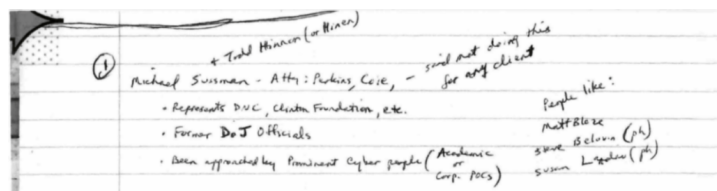 + Todd Hinnen (or Hinen)
① Michael Sussman - Atty: Perkins, Coie, - said not doing this for any client
• Represents DNC, Clinton Foundation, etc.
• Former DoJ Officials
• Been approached by Prominent Cyber people (Academic or Corp. POCs)
People like:
Matt Blaze
Steve Belovin (ph)
Susan Landau (ph)